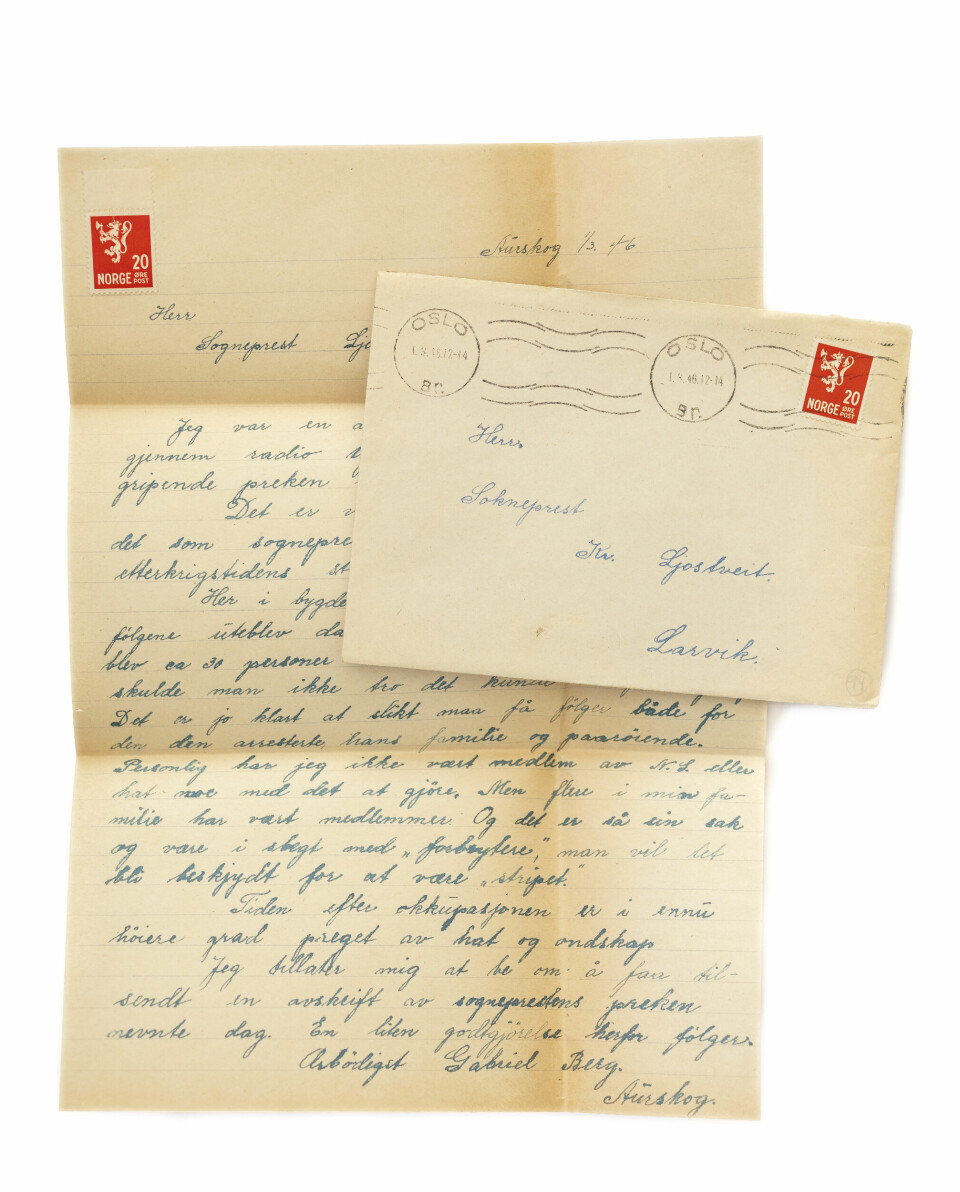 Aurskog 1/3. 46
20
NORGE ØRE POST
Herr
Sogneprest
Jeg var en
gjennem radio
gripende preken
Det er
det som sognepre
etterkrigstidens
Her i bygde
følgene uteblev da
blev ca 30 personer
skulde man ikke tro det kunde
Det er jo klart at slikt maa få følger både for
den den arresterte, hans familie og paarörende.
Personlig har jeg ikke vært medlem av N.S. eller
hat noe med det at gjöre. Men flere i min fa-
milie har vært medlemmer. Og det er så sin sak
og være i slegt med „forbrytere”, man vil let
bli beskjydt for at være „stripet.”
Tiden efter okkupasjonen er i ennu
höiere grad preget av hat og ondskap
Jeg tillater mig at be om å faa til-
sendt en avskrift av sogneprestens preken
nevnte dag. En liten godtgjörelse herfor følger.
Ærbödigst Gabriel Berg.
Aurskog.
OSLO
1.3.46.12-14
Br.
OSLO
1.3.46.12-14
Br.
20
NORGE ØRE POST
Herr.
Sokneprest
Kr. Ljostveit.
Larvik.